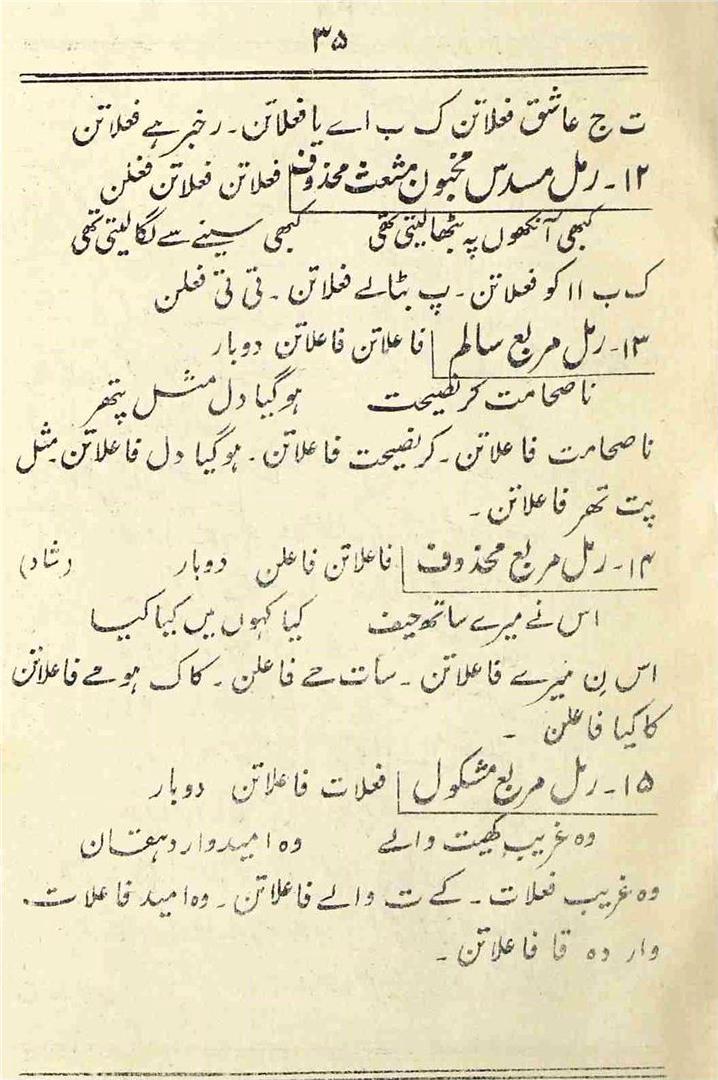 ۳۵
ت ج عاشق فعلاتن ک ب اے یا فعلاتن۔ رخبر ہے فعلاتن
۱۲۔ رمل مسدس مخبون مشعث محذوف فعلاتن فعلاتن فعلن
کبھی آنکھوں پہ بٹھا لیتی تھی کبھی سینے سے لگا لیتی تھی
ک ب اا کو فعلاتن۔ پ بٹالے فعلاتن۔ تی تی فعلن
۱۳۔ رمل مربع سالم فاعلاتن فاعلاتن دوبار
ناصحا مت کر نصیحت ہو گیا دل مثل پتھر
ناصحا مت فاعلاتن۔ کر نصیحت فاعلاتن۔ ہو گیا دل فاعلاتن۔ مثل
پت تھر فاعلاتن۔
۱۴۔ رمل مربع محذوف فاعلاتن فاعلن دوبار (شاد)
اس نے میرے ساتھ حیف کیا کہوں میں کیا کیا
اس نِ میرے فاعلاتن۔ سات حے فاعلن۔ کا ک ہو مے فاعلاتن
کا کیا فاعلن۔
۱۵۔ رمل مربع مشکول فعلات فاعلاتن دوبار
وہ غریب کھیت والے وہ امیدوار دہقان
وہ غریب فعلات۔ کے ت والے فاعلاتن۔ وہ امید فاعلات
وار دہ قا فاعلاتن۔